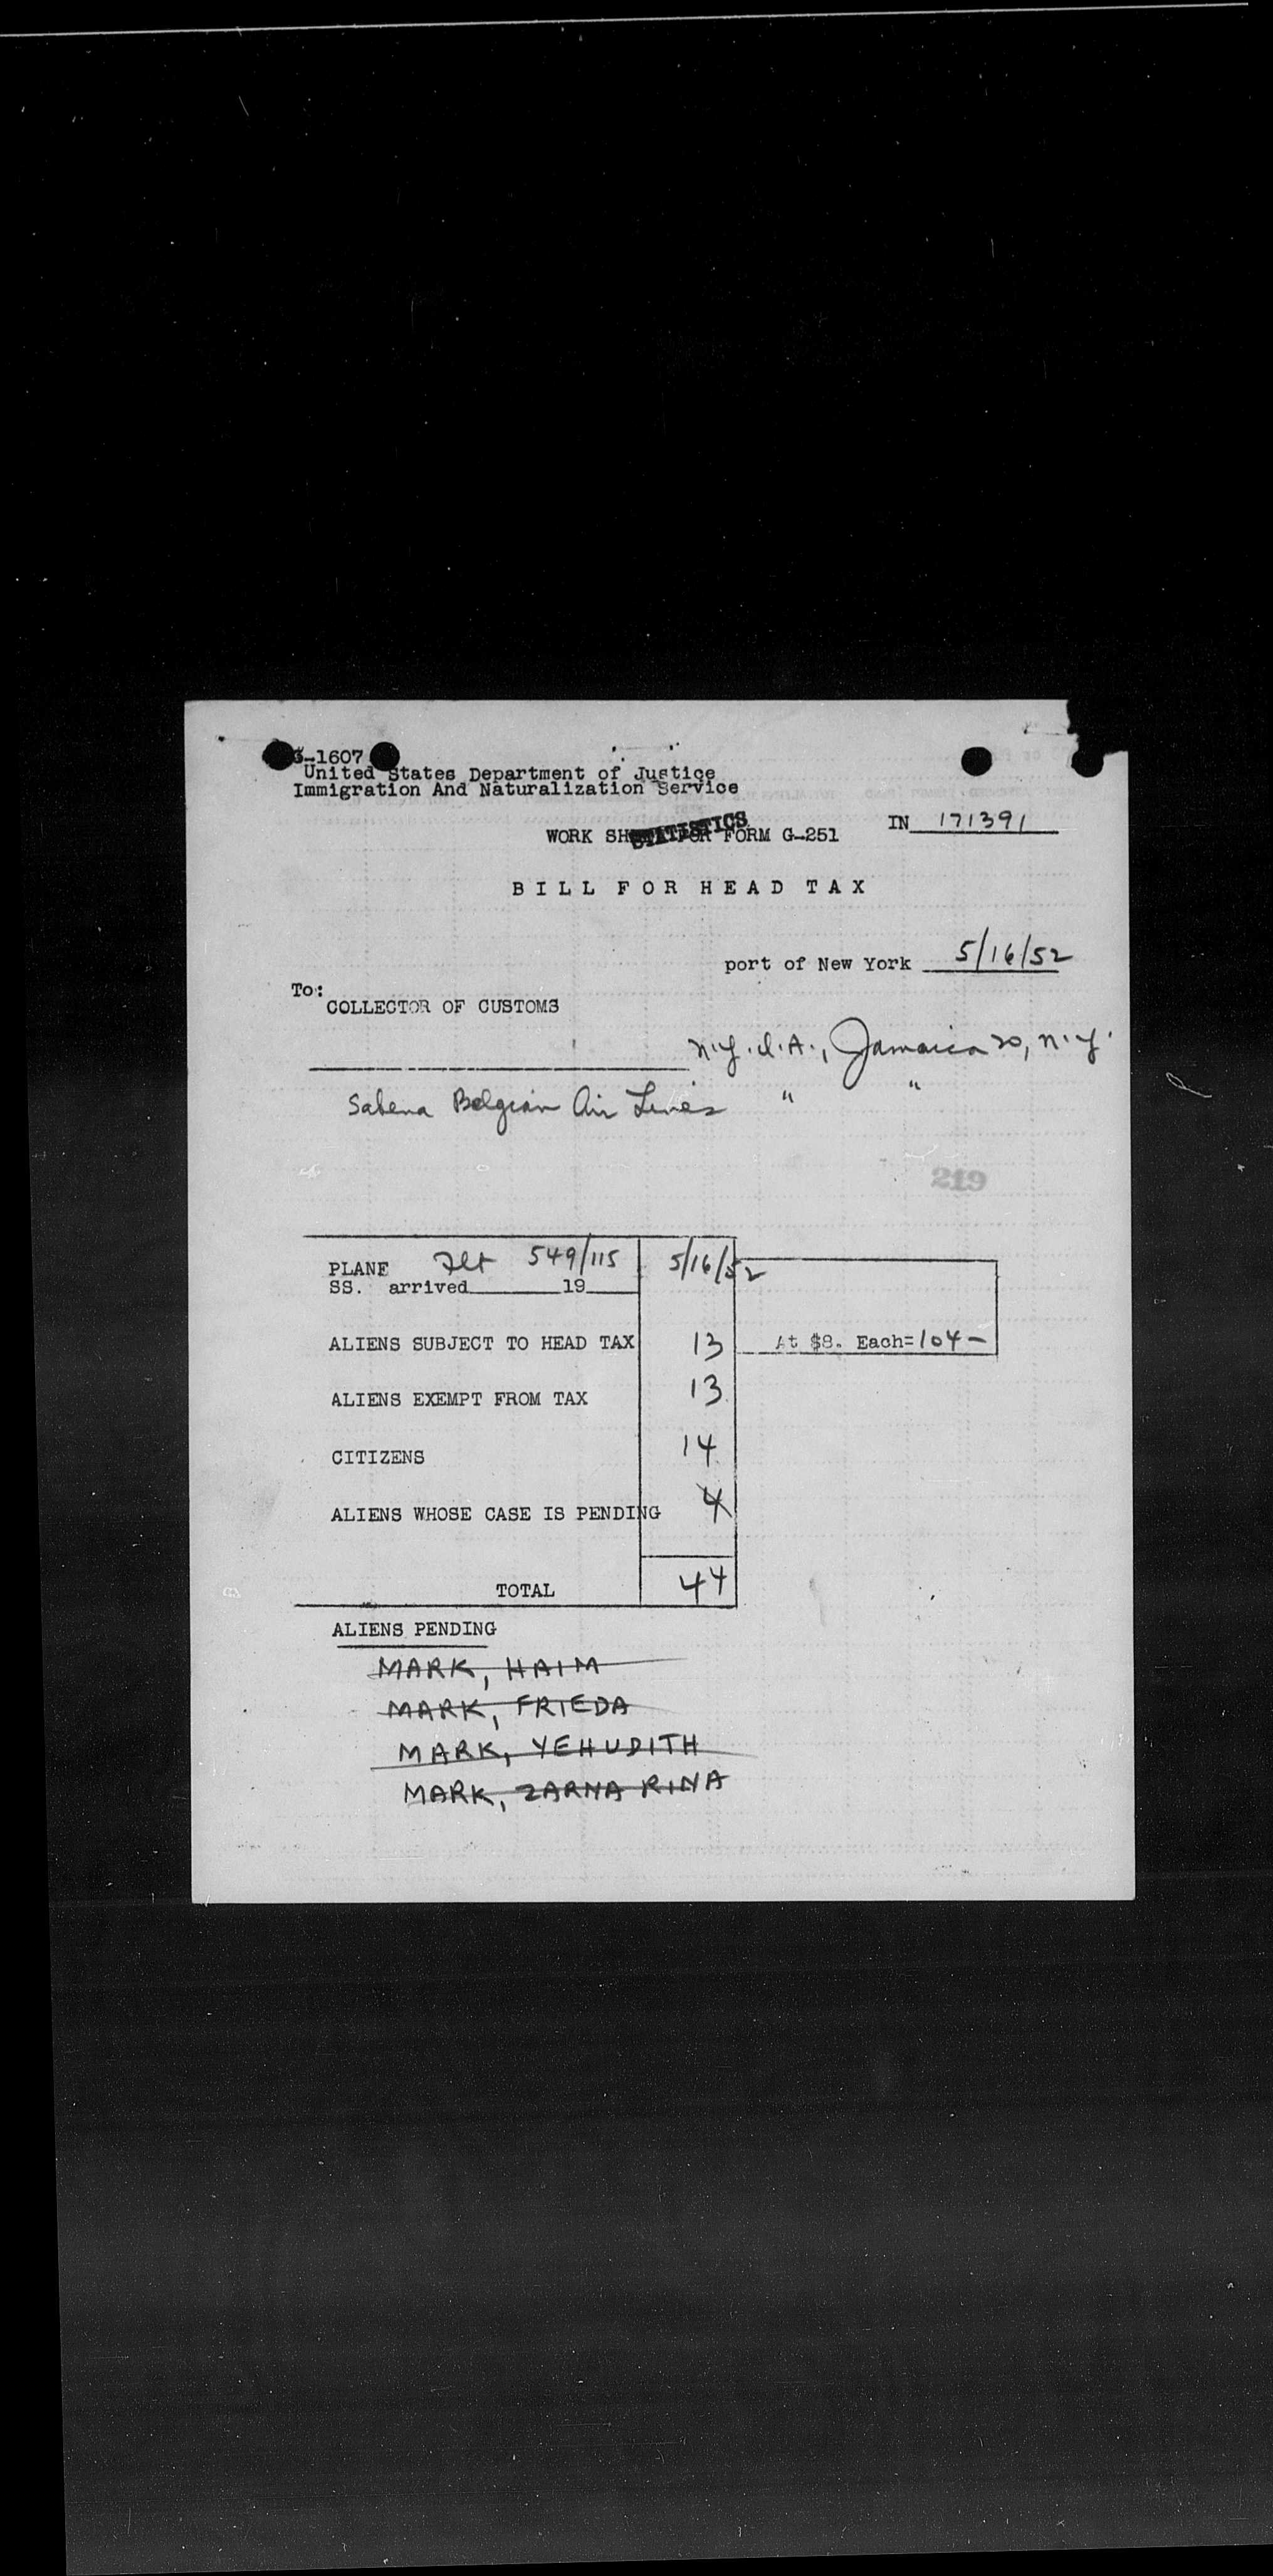 G-1607
United States Department of Justice
Immigration And Naturalization Service
STATISTICS
WORK SHEET FOR FORM G-251 IN 171391
BILL FOR HEAD TAX
port of New York 5/16/52
To:
COLLECTOR OF CUSTOMS
N.Y.I.A., Jamaica 20, N.Y.
Sabena Belgian Air Lines " "
219
PLANE Flt 549/115 5/16/52
SS. arrived 19
ALIENS SUBJECT TO HEAD TAX 13 At $8. Each=104-
ALIENS EXEMPT FROM TAX 13
CITIZENS 14
ALIENS WHOSE CASE IS PENDING 4
TOTAL 44
ALIENS PENDING
MARK, HAIM
MARK, FRIEDA
MARK, YEHUDITH
MARK, ZARNA RINA